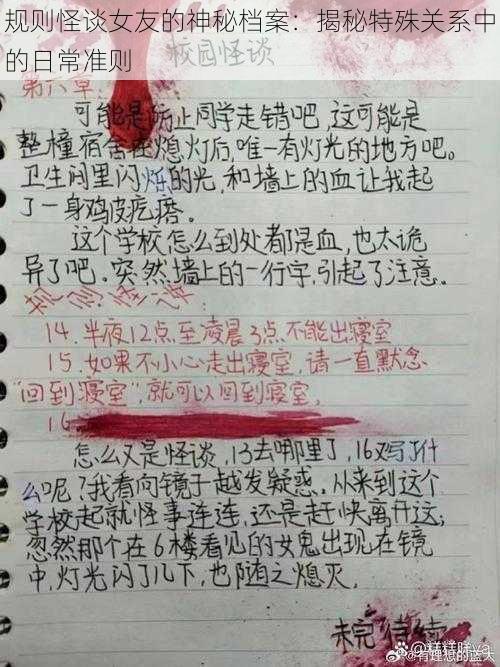 规则怪谈女友的神秘档案：揭秘特殊关系中
的日常准则
校园怪谈
第六章：
可能是防止同学走错吧，这可能是
整橦宿舍在熄灯后，唯一有灯光的地方吧。
卫生间里闪烁的光，和墙上的血让我起
了一身鸡皮疙瘩。
这个学校怎么到处都是血，也太诡
异了吧。突然墙上的一行字，引起了注意。
规则怪谈：
14.半夜12点至凌晨3点不能出寝室
15.如果不小心走出寝室，请一直默念
“回到寝室”，就可以回到寝室。
16
怎么又是怪谈，13去哪里了，16又写了什
么呢？我看向镜子越发疑惑。从来到这个
学校起就怪事连连，还是赶快离开这；
忽然那个在6楼看见的女鬼出现在镜
中，灯光闪了几下，也随之熄灭。
未完待续
@有理想的蓝天